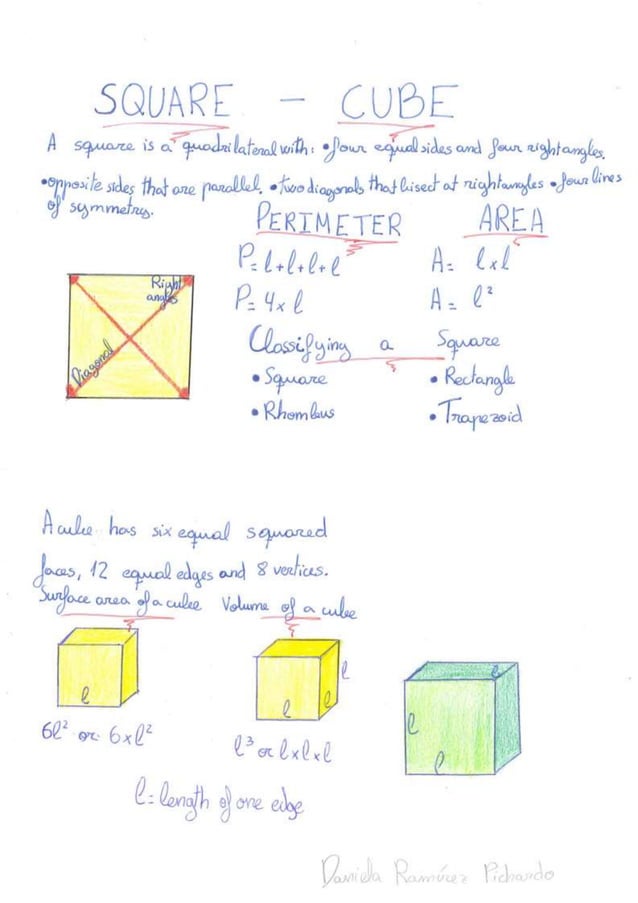 SQUARE - CUBE
A square is a quadrilateral with: • four equal sides and four right angles.
• opposite sides that are parallel. • two diagonals that bisect at right angles • four lines
of symmetry.
PERIMETER AREA
P= l+l+l+l A= lxl
P= 4x l A= l²
Right
angles
Diagonal
Classifying a Square
• Square • Rectangle
• Rhombus • Trapezoid
A cube has six equal squared
faces, 12 equal edges and 8 vertices.
Surface area of a cube Volume of a cube
l
l
l
l
l
l
l
6l² or 6xl²
l³ or lxlxl
l= length of one edge
Daniela Ramírez Pichardo